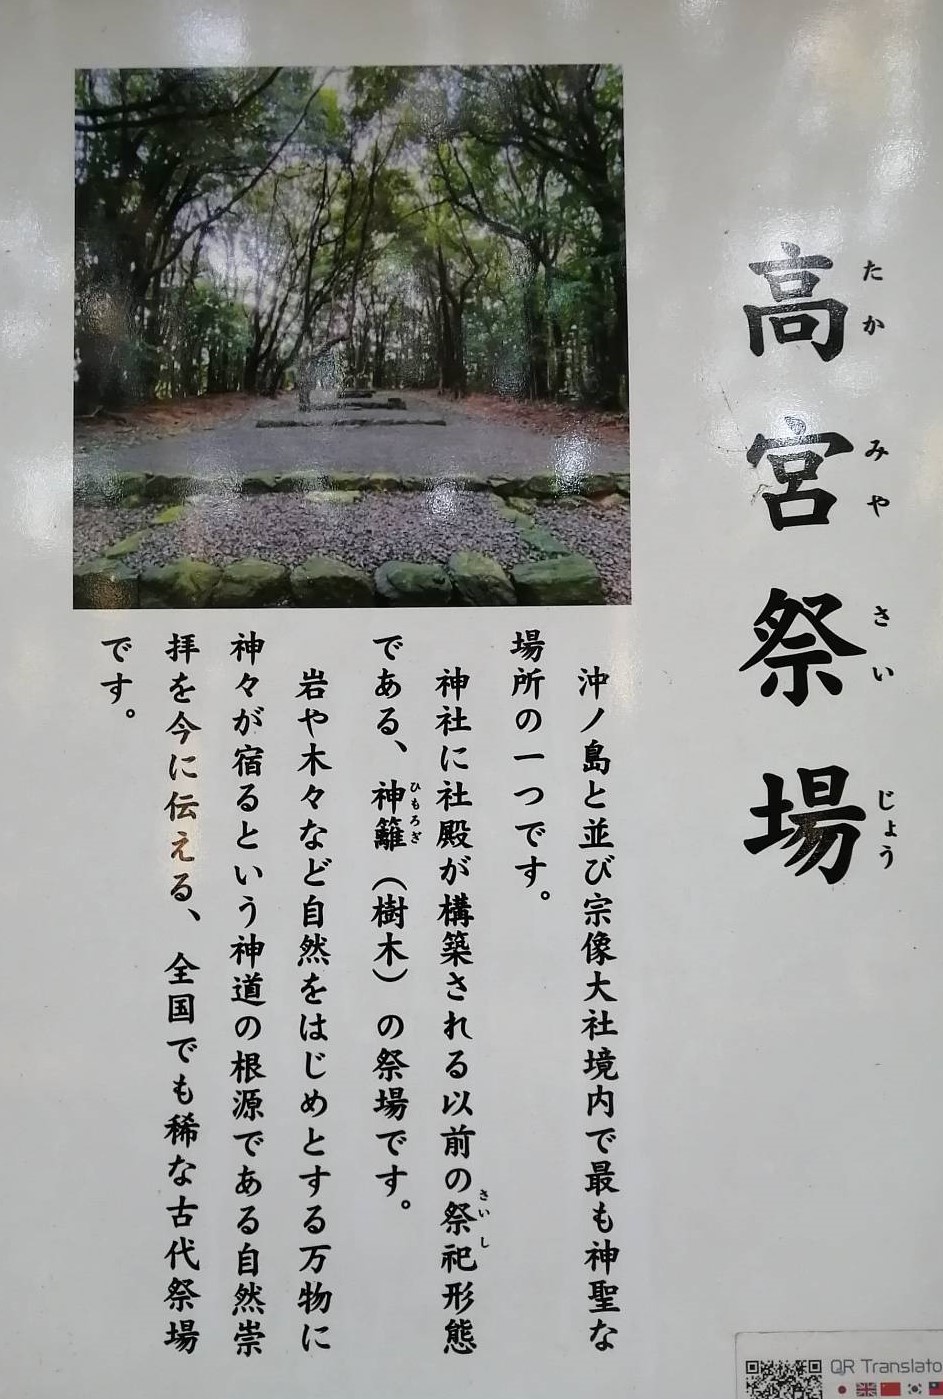 高宮祭場
たかみやさいじょう
沖ノ島と並び宗像大社境内で最も神聖な
場所の一つです。
神社に社殿が構築される以前の祭祀形態
さいし
である、神籬（樹木）の祭場です。
ひもろぎ
岩や木々など自然をはじめとする万物に
神々が宿るという神道の根源である自然崇
拝を今に伝える、全国でも稀な古代祭場
です。
QR Translato